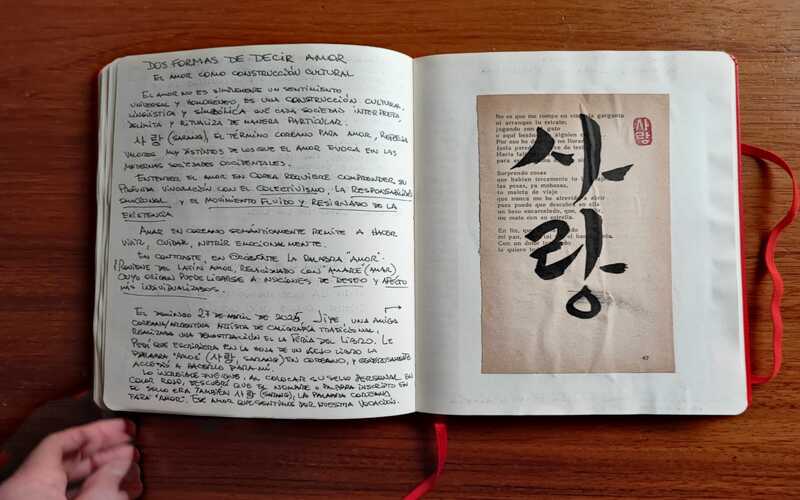 DOS FORMAS DE DECIR AMOR
EL AMOR COMO CONSTRUCCIÓN CULTURAL
EL AMOR NO ES SIMPLEMENTE UN SENTIMIENTO
UNIVERSAL Y HOMOGÉNEO, ES UNA CONSTRUCCIÓN CULTURAL,
LINGÜÍSTICA Y SIMBÓLICA QUE CADA SOCIEDAD INTERPRETA,
DELIMITA Y RITUALIZA DE MANERA PARTICULAR.
사랑 (SARANG), EL TÉRMINO COREANO PARA AMOR,
VALORES MUY DISTINTOS DE LOS QUE EL AMOR EVOCA EN LAS
MODERNAS SOCIEDADES OCCIDENTALES.
ENTENDER EL AMOR EN COREA REQUIERE COMPRENDER SU
PROFUNDA VINCULACIÓN CON EL COLECTIVISMO, LA RESPONSABILIDAD
EMOCIONAL Y EL MOVIMIENTO FLUIDO Y RESIGNADO DE LA
EXISTENCIA
AMAR EN COREANO SEMÁNTICAMENTE REMITE A HACER
VIVIR, CUIDAR, NUTRIR EMOCIONALMENTE.
EN CONTRASTE, EN OCCIDENTE LA PALABRA "AMOR"
PROVIENE DEL LATÍN AMOR, RELACIONADO CON "AMARE" (AMAR)
CUYO ORIGEN PUEDE LIGARSE A NOCIONES DE DESEO Y AFECTO
MÁS INDIVIDUALIZADOS.
EL DOMINGO 27 DE ABRIL DE 2025 JIYE, UNA AMIGA
COREANA/ARGENTINA ARTISTA DE CALIGRAFÍA TRADICIONAL,
REALIZABA UNA DEMOSTRACIÓN EN LA FERIA DEL LIBRO. LE
PEDÍ QUE ESCRIBIERA EN LA HOJA DE UN VIEJO LIBRO LA
PALABRA "AMOR" (사랑, SARANG) EN COREANO, Y GENEROSAMENTE
ACCEDIÓ A HACERLO PARA MÍ.
LO INCREÍBLE FUE QUE, AL COLOCAR SU SELLO PERSONAL EN
COLOR ROJO, DESCUBRÍ QUE EL NOMBRE O PALABRA INSCRIPTO EN
EL SELLO ERA TAMBIÉN 사랑 (SARANG), LA PALABRA COREANA
PARA "AMOR". ESE AMOR QUE SENTIMOS POR NUESTRA VOCACIÓN.
No es que me rompa en la garganta
ni arranques tu retrato;
jugando con
o aquí alguien
Por eso he no lloraré
Sorprendo cosas
que habían tercamente
las pesas, ya mohosas,
tu maleta de viaje
que nunca me he atrevido a abrir
pues puede que descubra en ella
un beso encarcelado, que,
me mate con su estrella.
En fin,
mi pan,
Con un dolor
te quiero
사랑
사랑
47